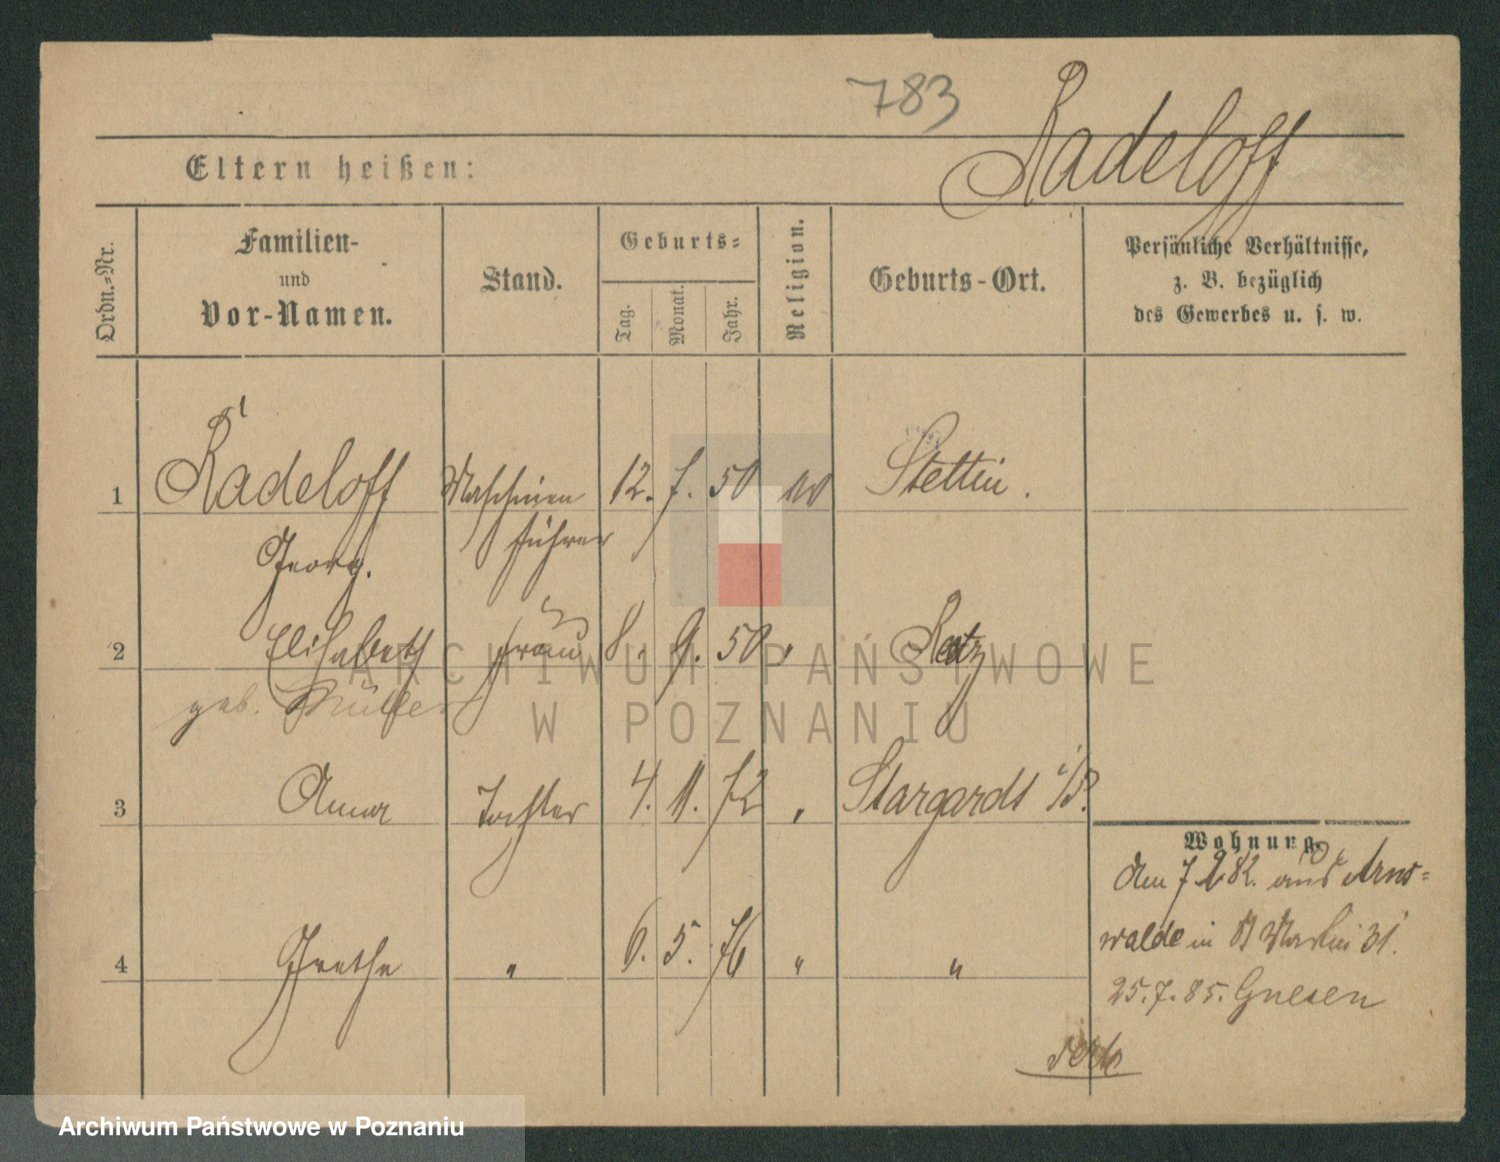 783
Radeloff
Eltern heißen:
Ordn.-Nr.
Familien-
und
Vor-Namen.
Stand.
Geburts-
Tag.
Monat.
Jahr.
Religion.
Geburts-Ort.
Persönliche Verhältnisse,
z. B. bezüglich
des Gewerbes u. s. w.
1 Radeloff Maschinen 12. 7. 50 Stettin.
Georg. führer
2 Elisabeth Frau 8. 9. 50 " Reetz
geb. Müller
3 Anna Tochter 4. 11. 72 " Stargardt i/P.
Wohnung.
den 7 2 82. aus Arns-
walde in St Martin 31.
4 Grethe " 6. 5. 76 " "
25.7.85. Gnesen
ARCHIWUM PAŃSTWOWE
W POZNANIU
Archiwum Państwowe w Poznaniu